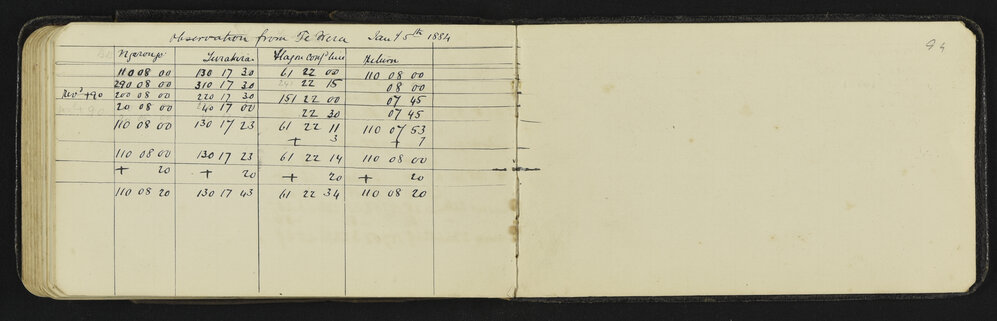 Observation from Te Wera Jany 5th 1884
Return
110 08 00 130 17 30 61 22 00 110 08 00
290 08 00 310 17 30 22 15 08 00
+90 200 08 00 220 17 30 151 22 00 07 45
20 08 00 40 17 00 22 30 07 45
110 08 00 130 17 23 61 22 11 110 07 53
+ 3 + 7
110 08 00 130 17 23 61 22 14 110 08 00
+ 20 + 20 + 20 + 20
110 08 20 130 17 43 61 22 34 110 08 20